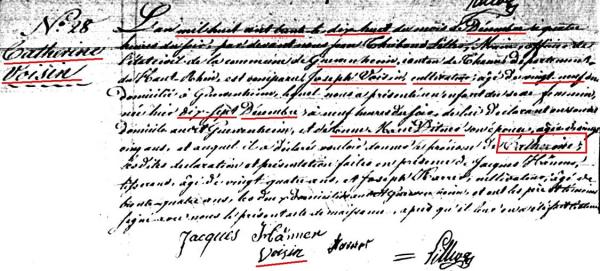 Nº 28
Catherine
Voisin
L'an mil huit cent trente le dix huit du mois de Décembre à quatre
heures du soir, par devant nous Jean Thiébaud Maire, officier de
l'état civil de la commune de Guewenheim, canton de Thann, Département
du Haut Rhin, est comparu Joseph Voisin, cultivateur, âgé de vingt neuf ans
domicilié à Guewenheim, lequel nous a présenté un enfant du sexe féminin,
née hier dix-sept Décembre à neuf heures du soir, de lui déclarant en son
domicile audit Guewenheim, et de son épouse, âgée de vingt
cinq ans, et auquel il a déclaré vouloir donner le prénom de Catherine ;
les dites déclaration et présentation faites en présence de Jacques Hänner,
tisserand, âgé de vingt quatre ans, et Joseph cultivateur, âgé de
trente quatre ans, les deux domiciliés à Guewenheim, et ont les père et témoins
signé avec nous le présent acte de naissance, après qu'il leur en a été fait lecture
Jacques Hänner
Voisin